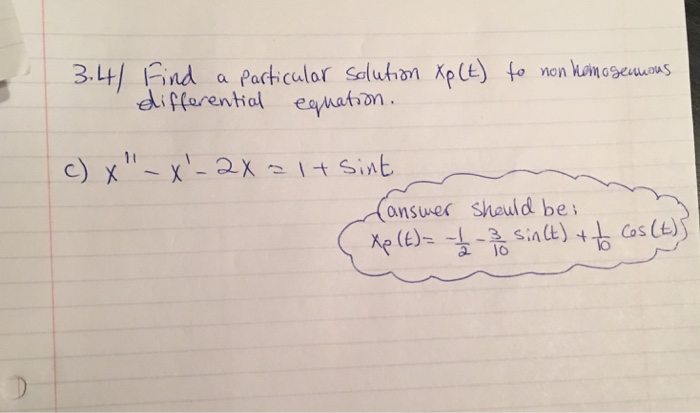 3.4/ Find a particular solution xp(t) to nonhomogenuous
differential equation.
c) x" - x' - 2x = 1 + sint
(answer should be:
xp(t) = -1/2 - 3/10 sin(t) + 1/10 cos(t)}